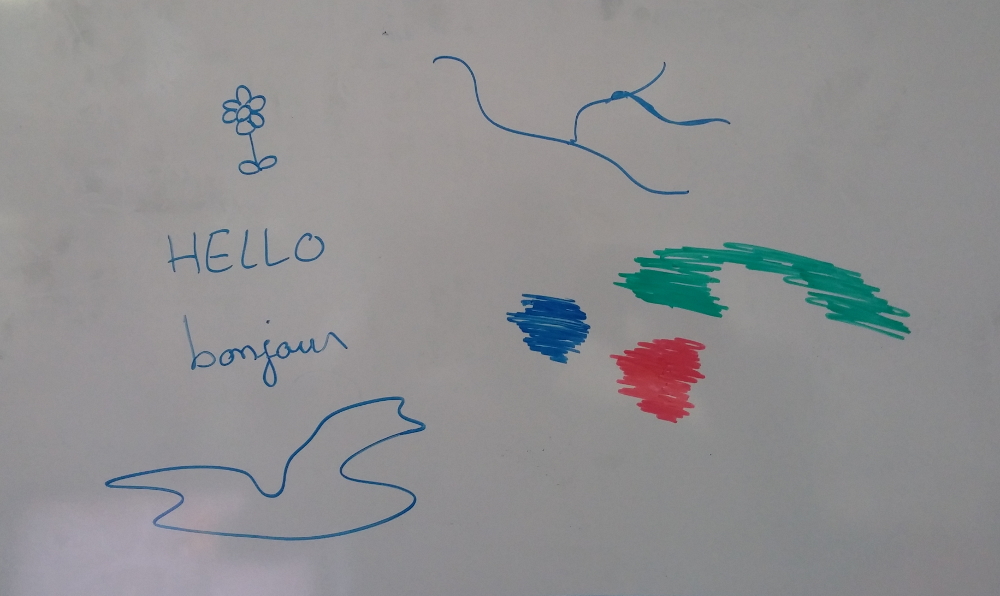 HELLO
bonjour